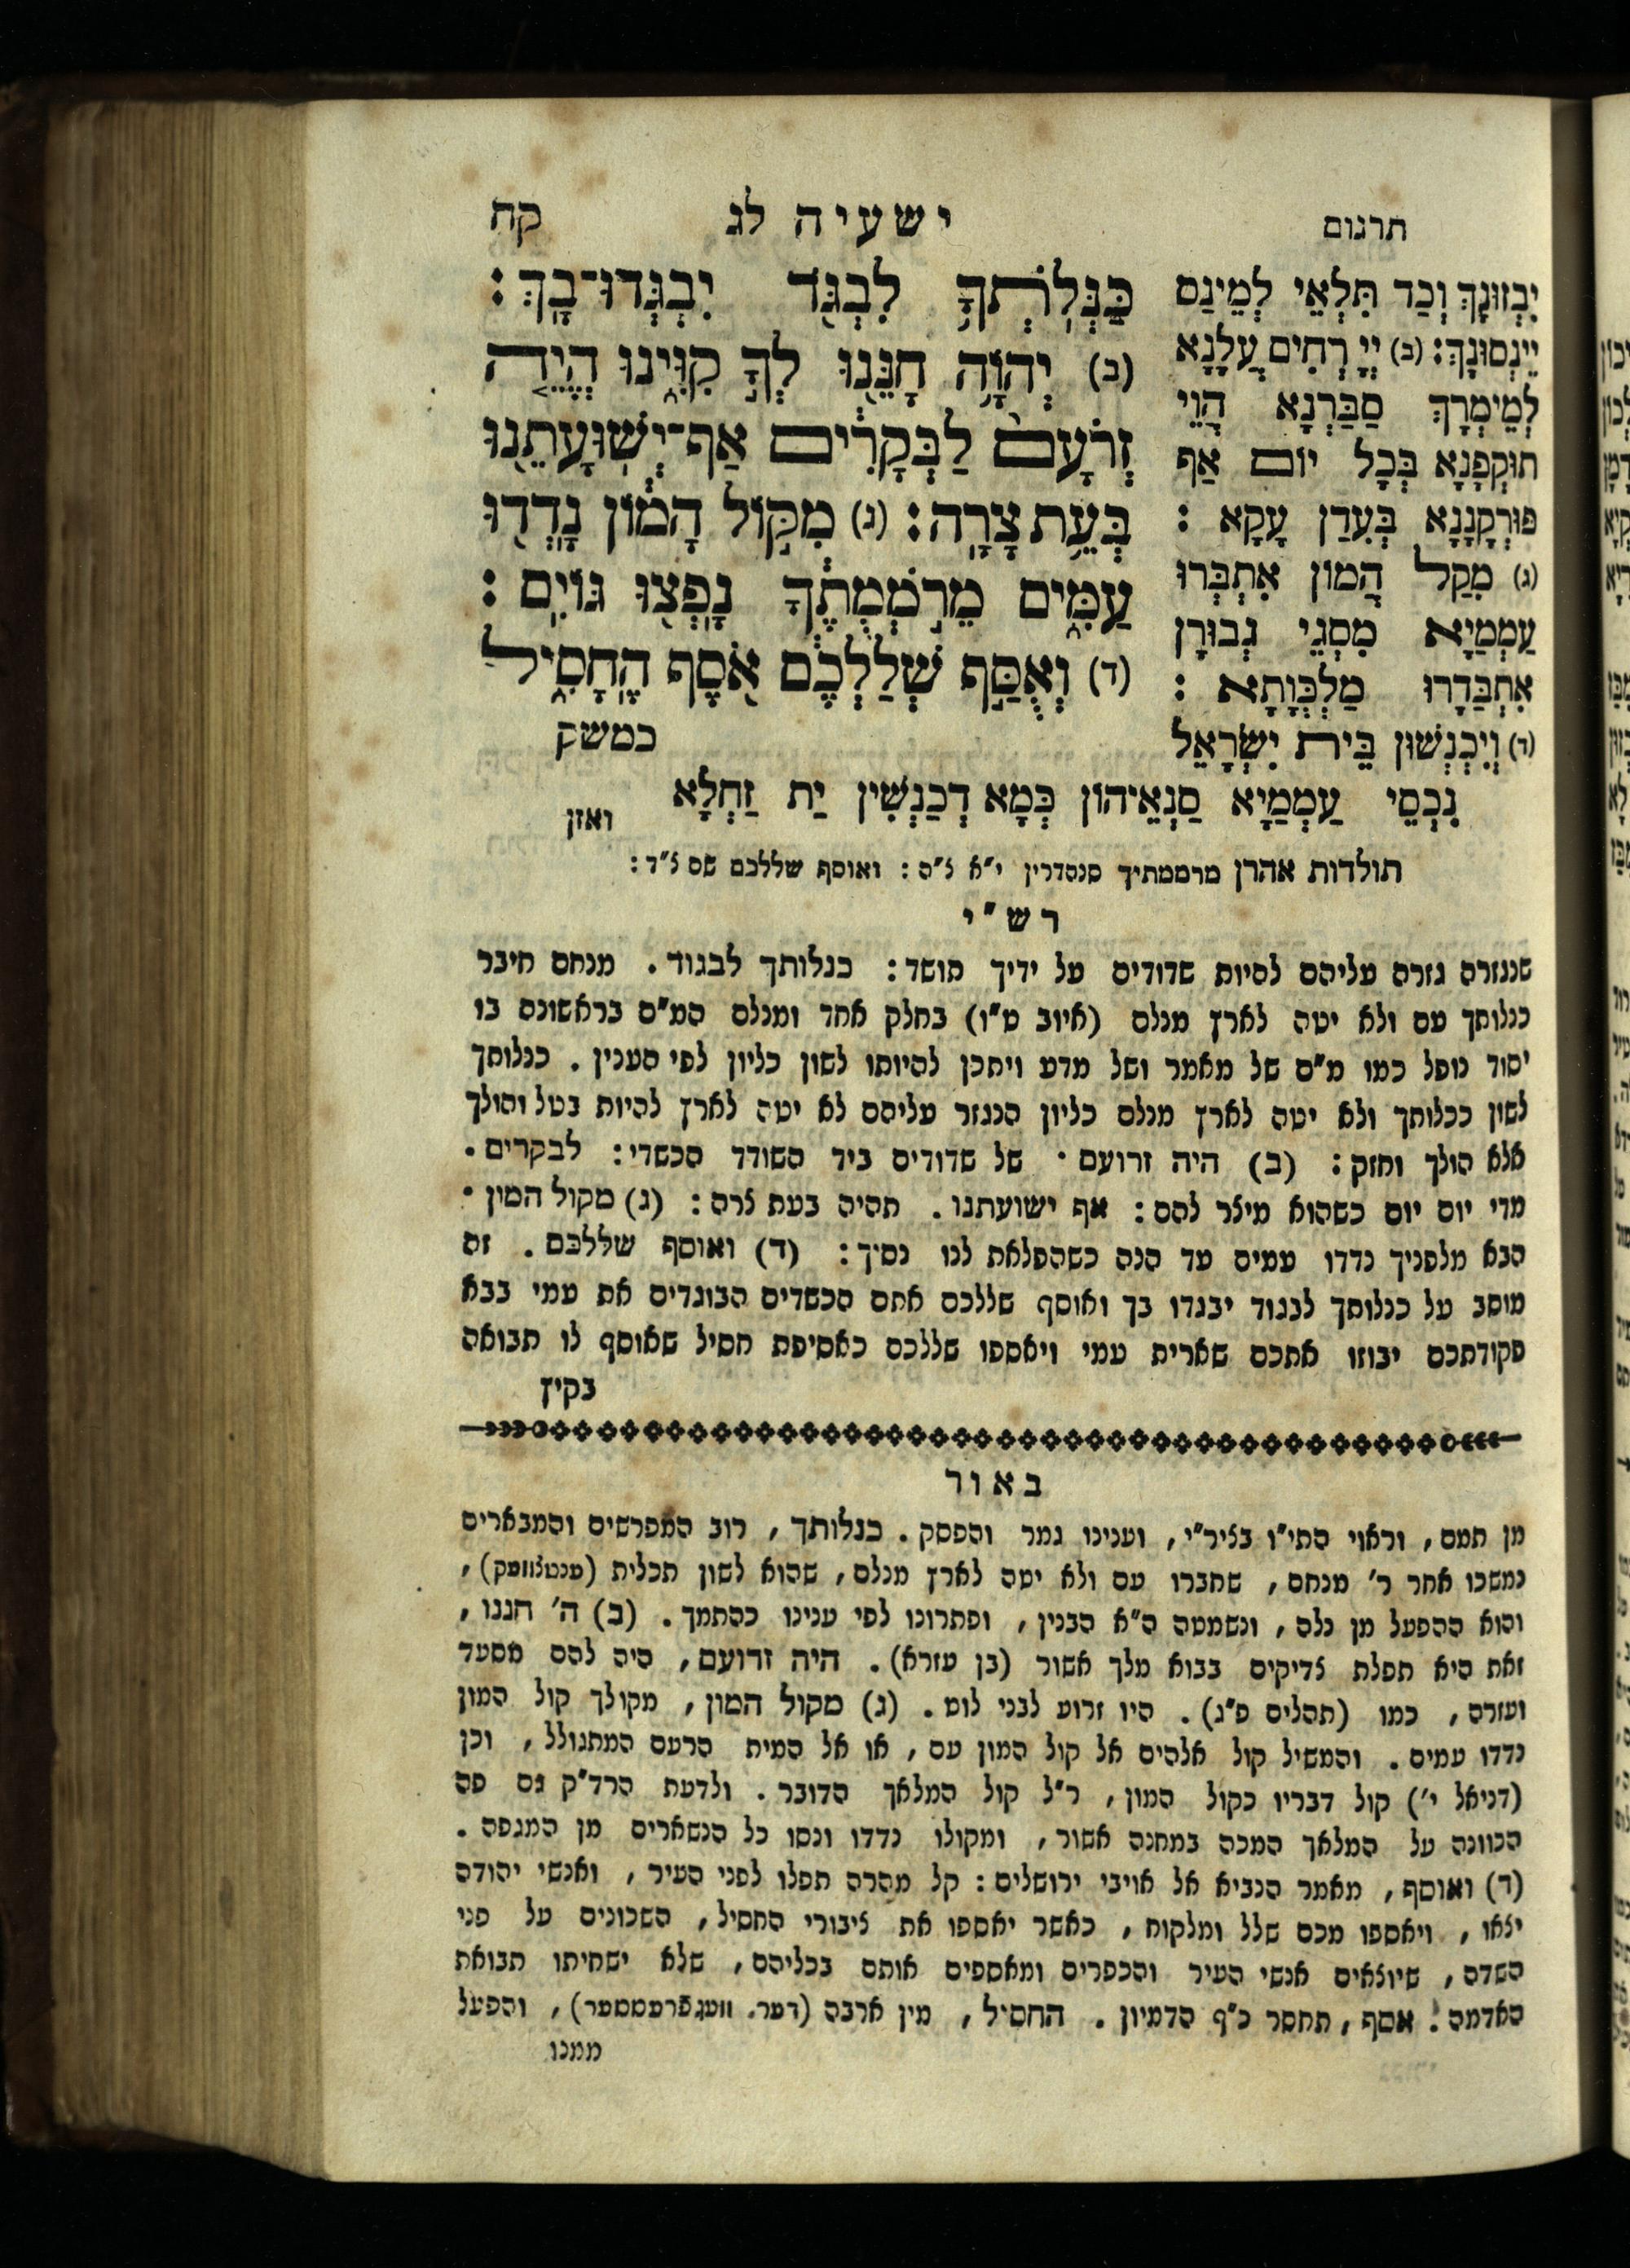 תרגום
ישעיה לג
קח
כַּנְּלֹתְךָ֥ לִבְגֹּ֖ד יִבְגְּדוּ־בָֽךְ׃
(ב) יְהוָ֥ה חָנֵּ֖נוּ לְךָ֣ קִוִּ֑ינוּ הֱיֵ֤ה
זְרֹעָם֙ לַבְּקָרִ֔ים אַף־יְשֽׁוּעָתֵ֖נוּ
בְּעֵ֥ת צָרָֽה׃ (ג) מִקּ֣וֹל הָמ֔וֹן נָדְד֖וּ
עַמִּ֑ים מֵרֹ֣מְמֻתֶ֔ךָ נָפְצ֖וּ גּוֹיִֽם׃
(ד) וְאֻסַּ֣ף שְׁלַלְכֶ֔ם אֹ֖סֶף הֶֽחָסִ֑יל
כמשק
יִבְזוּנָךְ וְכַד תִּלְאֵי לְמֵינַס
יֵינְסוּנָךְ: (ב) יְיָ רְחִים עֲלָנָא
לְמֵימְרָךְ סַבַּרְנָא הֱוֵי
תוּקְפָּנָא בְּכָל יוֹם אַף
פּוּרְקָנָנָא בְּעִדַן עָקָא:
(ג) מִקַל הֲמוֹן אִתְבְּרוּ
עַמְמַיָא מִסְגֵי גְבוּרָן
אִתְבַּדָרוּ מַלְכְּוָתָא:
(ד) וְיִכְנְשׁוּן בֵּית יִשְׂרָאֵל
נִכְסֵי עַמְמַיָא סַנְאֵיהוֹן כְּמָא דְכַנְשִׁין יַת זַחְלָא
ואזן
תולדות אהרן מרממתיך סנהדרין י״א צ״ה: ואוסף שללכם שם צ״ד:
רש״י
שנגזרה גזרה עליהם להיות שדודים על ידיך תושד: כנלותך לבגוד. מנחם חיבר
כנלותך עם ולא יטה לארץ מנלם (איוב ט״ו) בחלק אחד ומנלם המ״ם בראשונה בו
יסוד נופל כמו מ״ם של מאמר ושל מדע ויתכן להיותו לשון כליון לפי הענין. כנלותך
לשון ככלותך ולא יטה לארץ מנלם כליון הנגזר עליהם לא יטה לארץ להיות בטל והולך
אלא הולך וחזק: (ב) היה זרועם. של שדודים ביד השודד הכשדי: לבקרים.
מדי יום יום כשהוא מיצר להם: אף ישועתנו. תהיה בעת צרה: (ג) מקול המון.
הבא מלפניך נדדו עמים עד הנה כשהפלאת לנו נסיך: (ד) ואוסף שללכם. זה
מוסב על כנלותך לבגוד יבגדו בך ואוסף שללכם אתם הכשדים הבוגדים את עמי בבא
פקודתכם יבוזו אתכם שארית עמי ויאספו שללכם כאסיפת חסיל שאוסף לו תבואה
בקיץ
באור
מן תמם, וראוי התי״ו בצירי״י, וענינו גמר והפסק. כנלותך, רוב המפרשים והמבארים
נמשכו אחר ר׳ מנחם, שחברו עם ולא יטה לארץ מנלם, שהוא לשון תכלית,
והוא ההפעל מן נלה, ונשמטה ה״א הבנין, ופתרונו לפי ענינו כהתמך. (ב) ה׳ חננו,
זאת היא תפלת צדיקים בבוא מלך אשור (בן עזרא). היה זרועם, היה להם מסעד
ועזרה, כמו (תהלים פ״ג). היו זרוע לבני לוט. (ג) מקול המון, מקולך קול המון
נדדו עמים. והמשיל קול אלהים אל קול המון עם, או אל המית הרעם המתגולל, וכן
(דניאל י׳) קול דבריו כקול המון, ר״ל קול המלאך הדובר. ולדעת הרד״ק גם פה
הכוונה על המלאך המכה במחנה אשור, ומקולו נדדו ונסו כל הנשארים מן המגפה.
(ד) ואוסף, מאמר הנביא אל אויבי ירושלים: קל מהרה תפלו לפני העיר, ואנשי יהודה
יצאו, ויאספו מכם שלל ומלקוח, כאשר יאספו את ציבורי החסיל, השכונים על פני
השדה, שיוצאים אנשי העיר והכפרים ומאספים אותם בכליהם, שלא ישחיתו תבואת
האדמה: אסף, תחסר כ״ף הדמיון. החסיל, מין ארבה (דער. וועגפרעססער), והפעל
ממנו